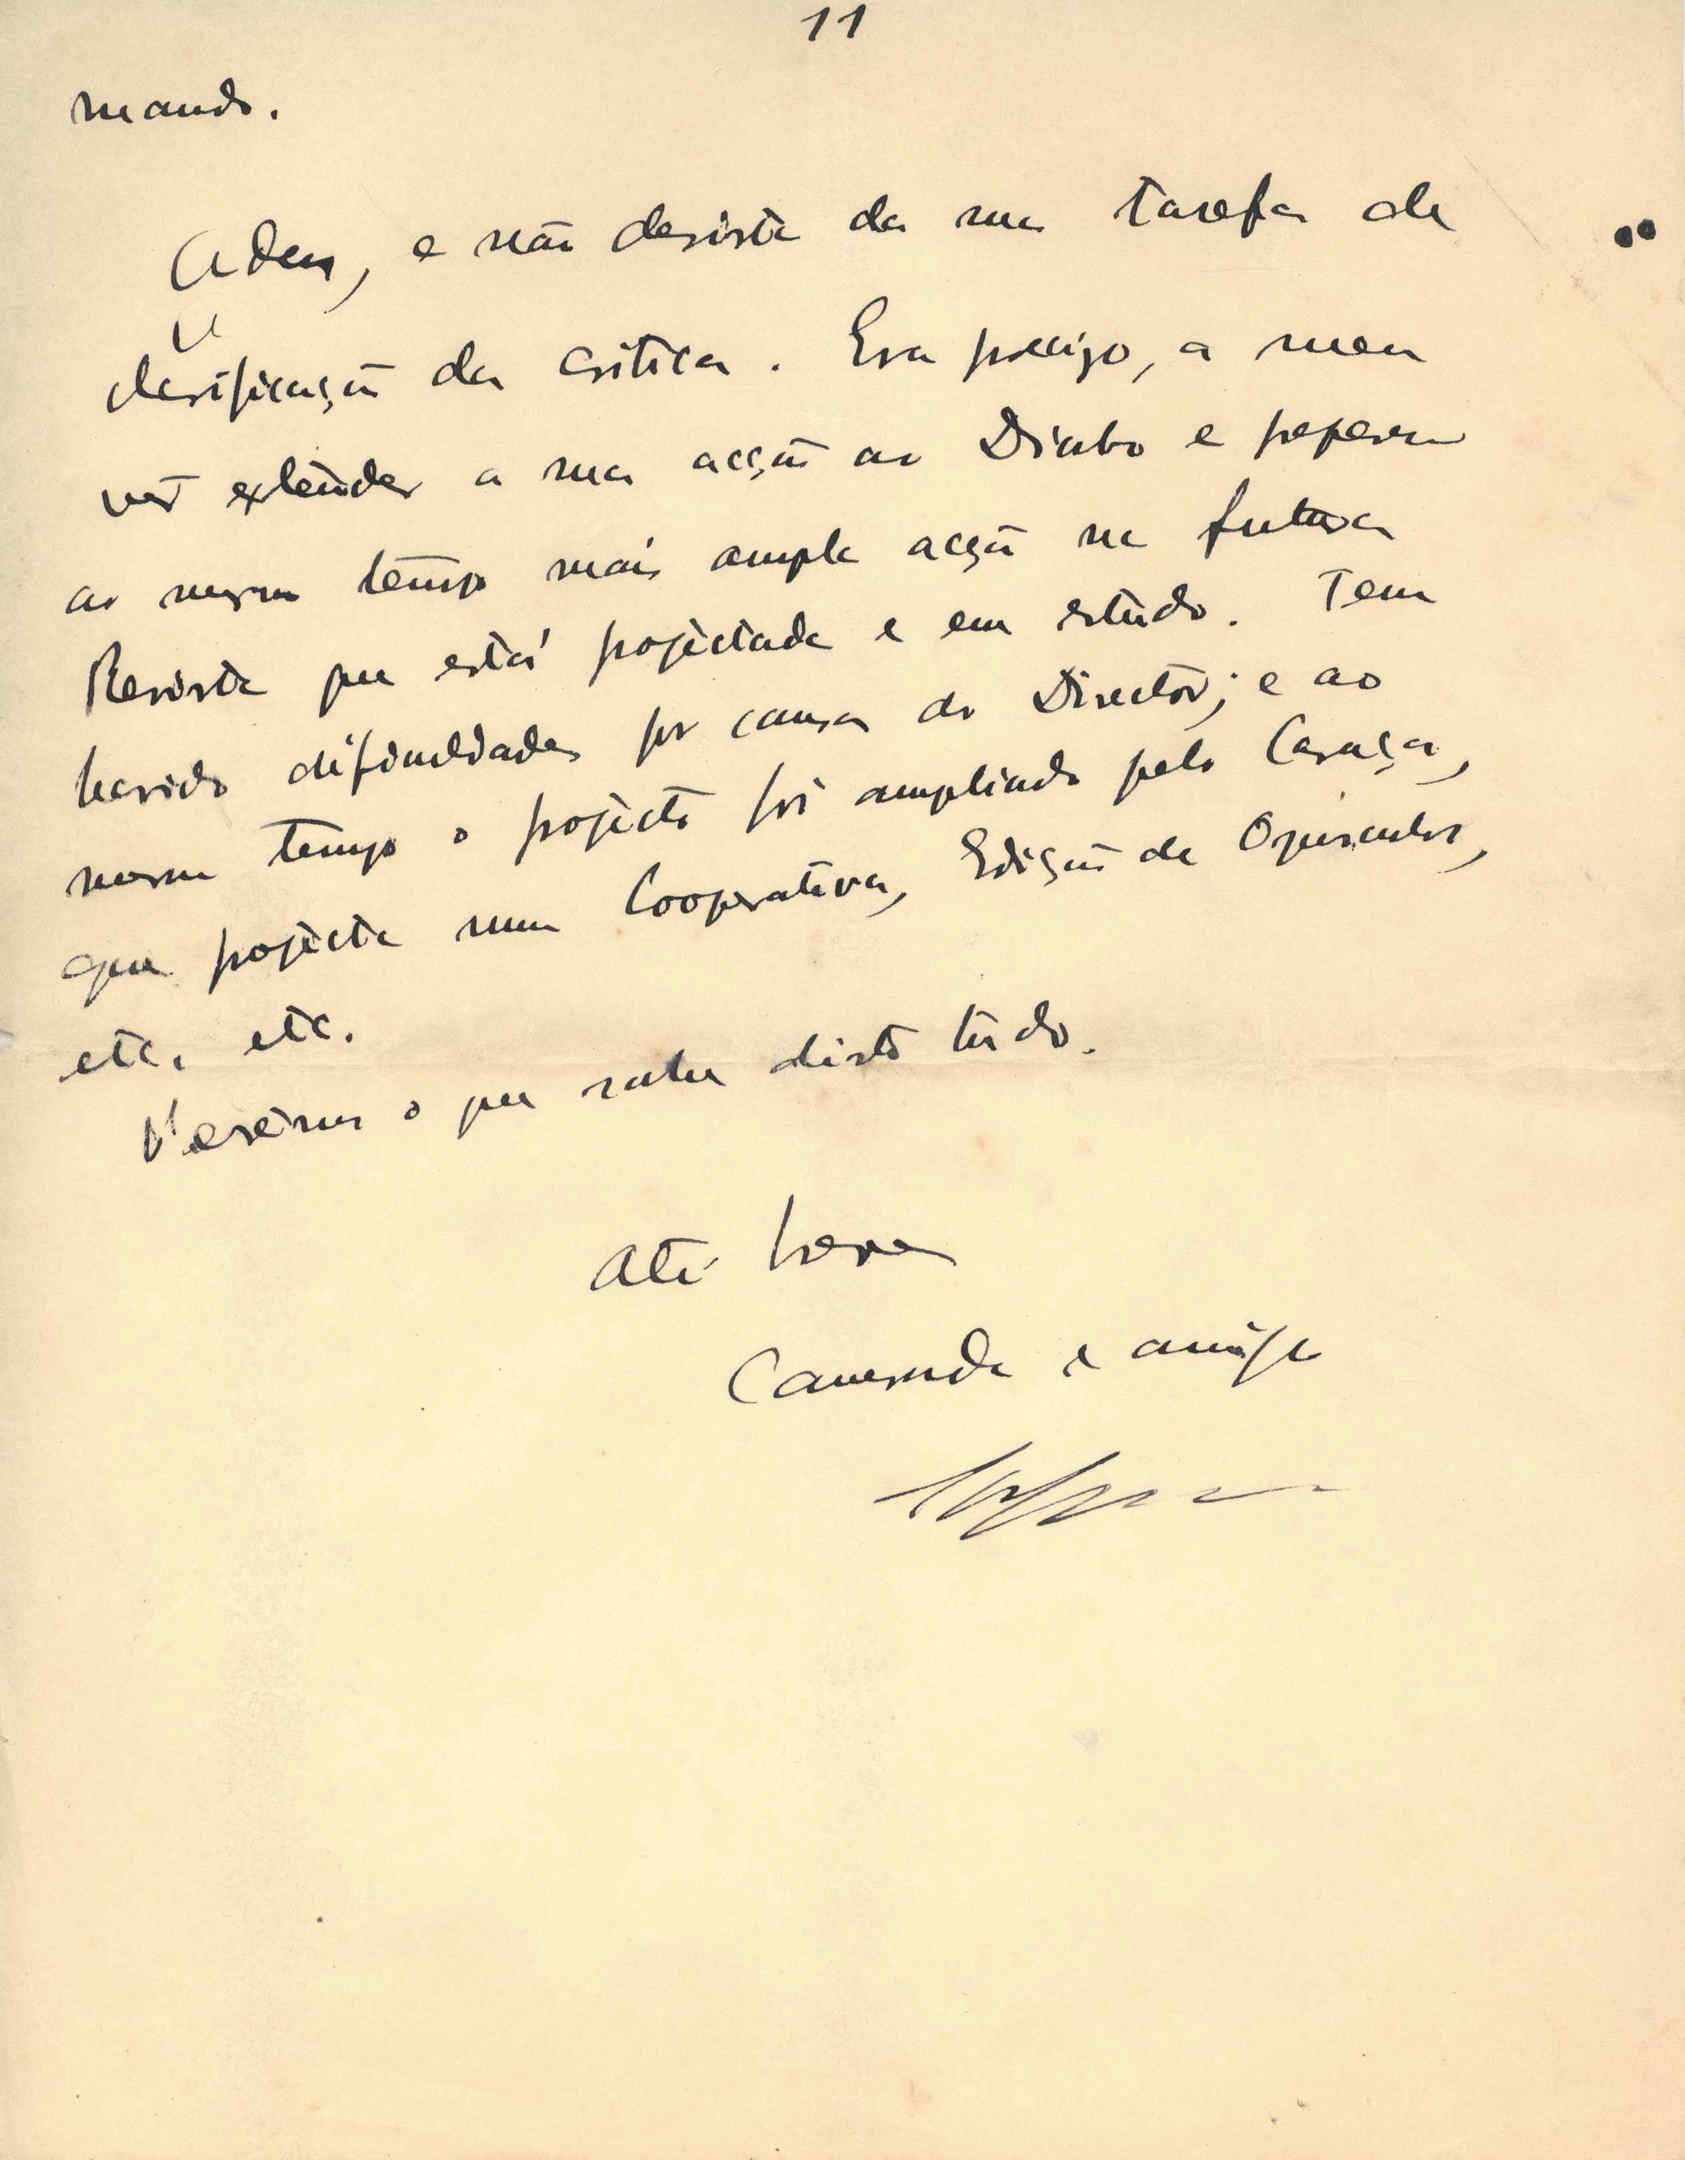 11
mando.
Adeus, e não desista da sua tarefa de
clarificação da critica. Era preciso, a meu
ver extender a sua acção ao Diabo e preparar
ao mesmo tempo mais ampla acção na futura
Revista que está projectada e em estudo. Tem
havido dificuldades por causa do Director; e ao
mesmo tempo o projecto foi ampliado pelo Caraça,
que projecta uma Cooperativa, Edição de Opusculos,
etc, etc.
Veremos o que sahe disto tudo.
Até breve
Camarada e amigo